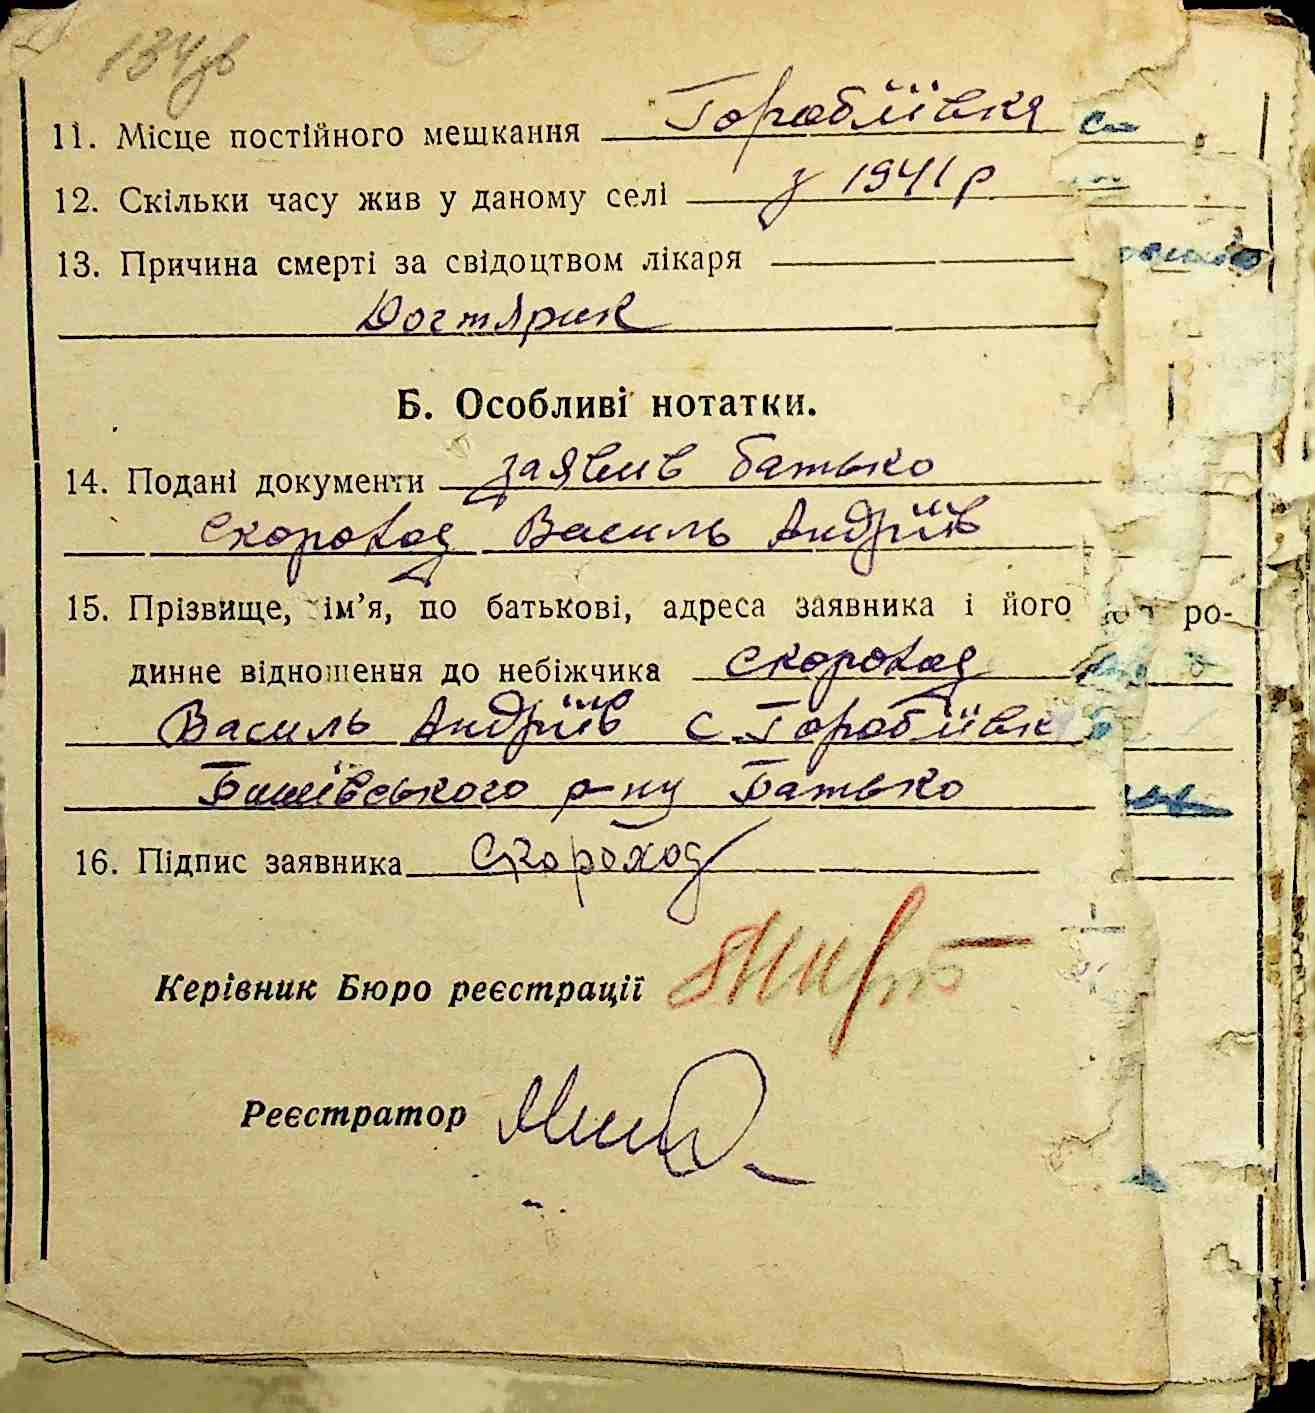 134зв
11. Місце постійного мешкання Горобіївка
12. Скільки часу жив у даному селі з 1941 р
13. Причина смерті за свідоцтвом лікаря
Б. Особливі нотатки.
14. Подані документи заявив батько
Скороход Василь Андріїв
15. Прізвище, ім’я, по батькові, адреса заявника і його ро-
динне відношення до небіжчика Скороход
Василь Андріїв с. Горобіївк
Бишівського р-ну Батько
16. Підпис заявника Скороход
Керівник Бюро реєстрації
Реєстратор